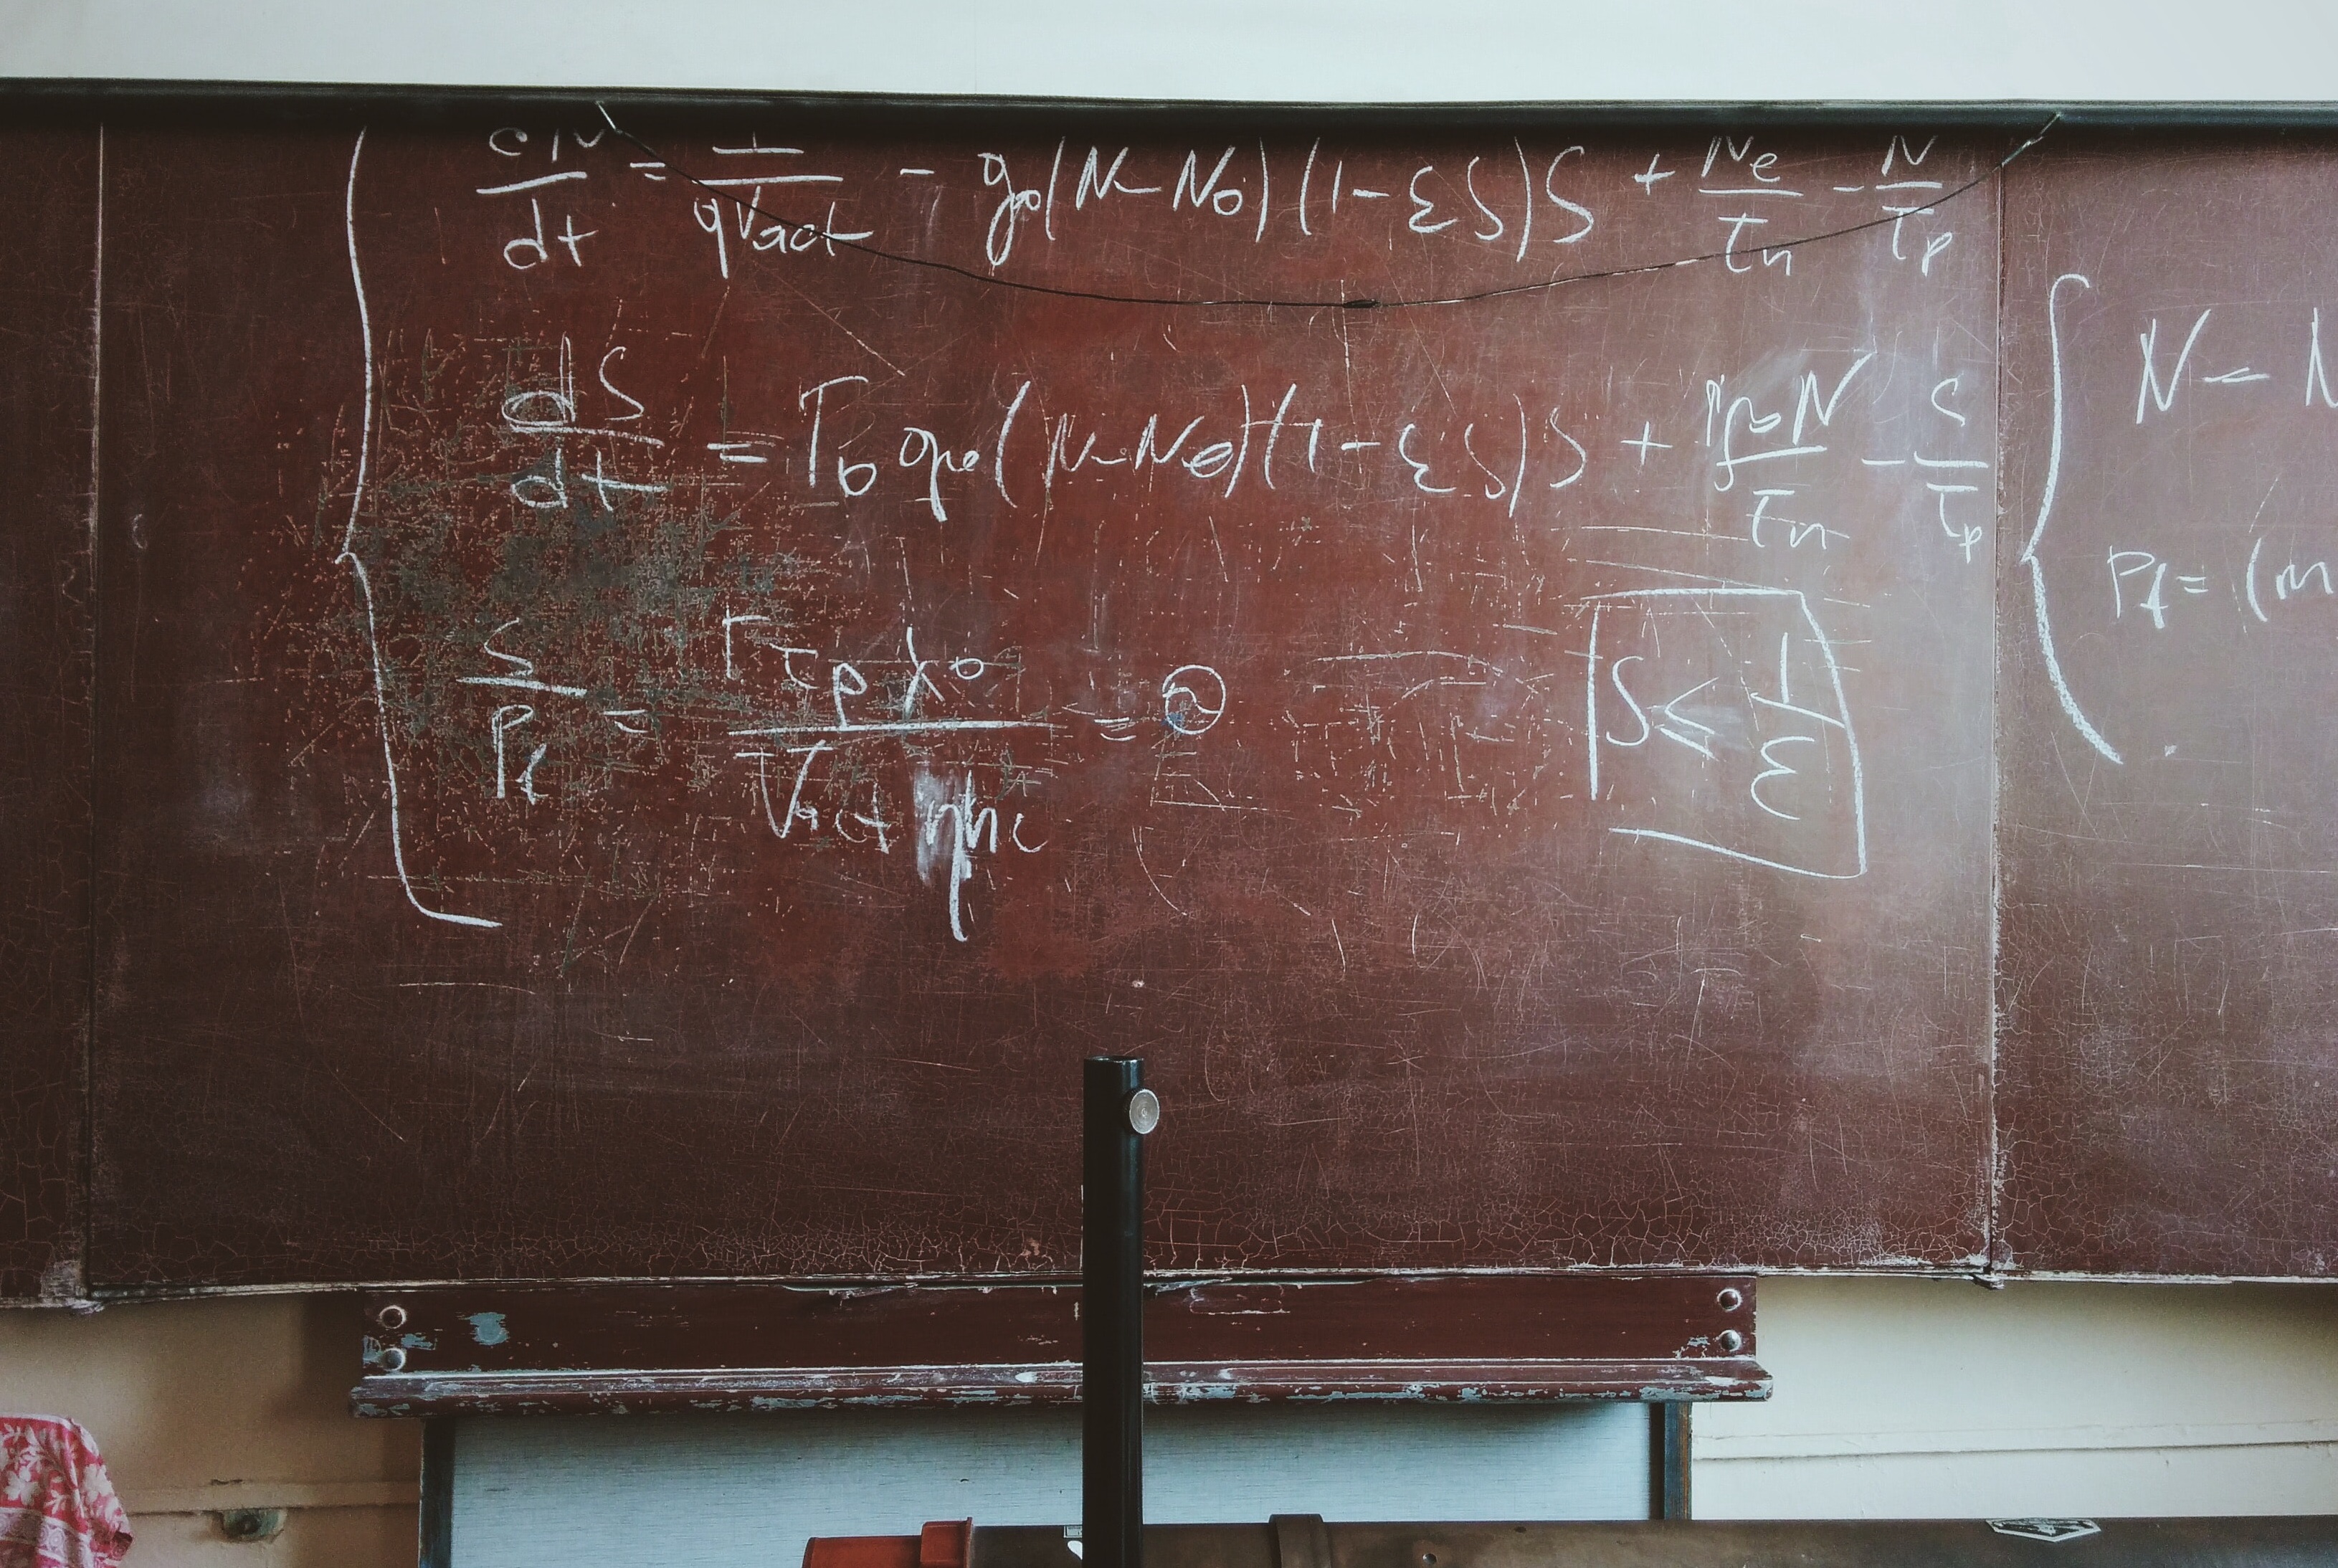 dN/dt = I/qVact - g0(N-N0)(1-εS)S + Ne/τn - N/τp
dS/dt = Γ0 g0(N-N0)(1-εS)S + N/τn - S/τp
S/Pf = Γτpλ0/Vact ηhc = 
S ≤ 1/ε
N - N
Pf = (m